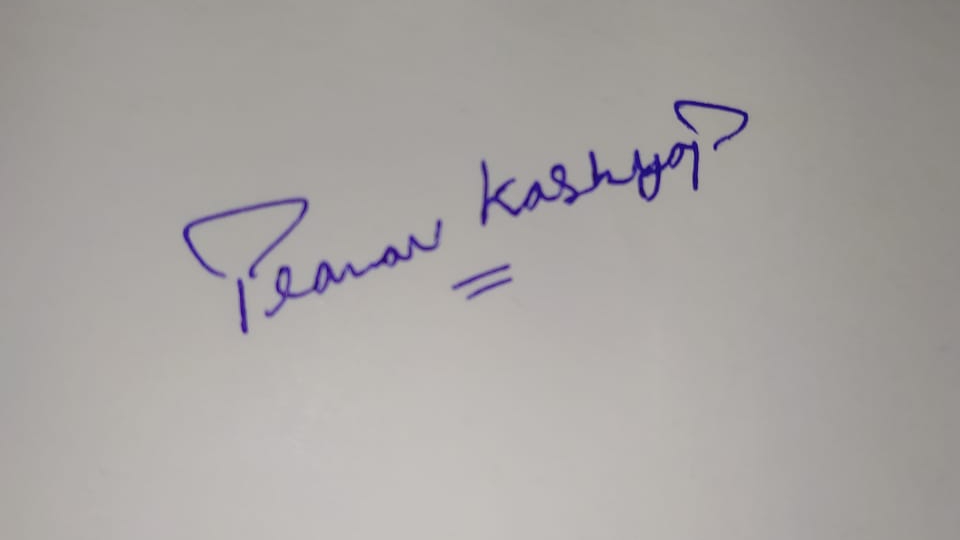 Pranav Kashyap